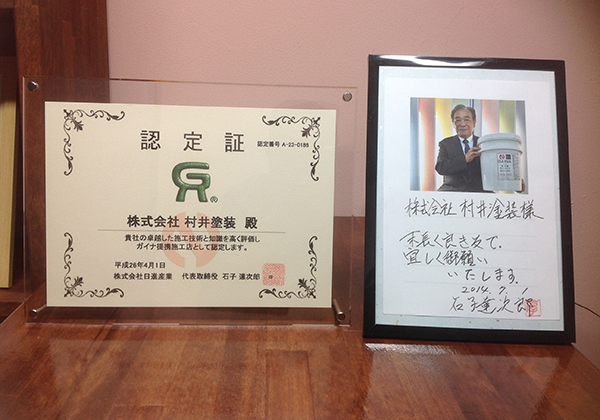 認定証
認定番号 A-22-0186
GR®
株式会社 村井塗装 殿
貴社の卓越した施工技術と知識を高く評価し
ガイナ提携施工店として認定します。
平成26年4月1日
株式会社日進産業 代表取締役 石子 達次郎
GAINA
株式会社 村井塗装様
末長く良き友で、
宜しく御願い
いたします。
2014. 7. 1
石子達次郎